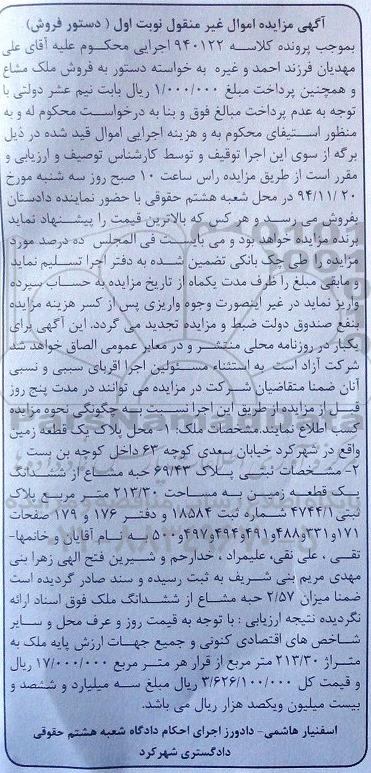 آگهی مزایده اموال غیر منقول نوبت اول ( دستور فروش)
بموجب پرونده کلاسه ۹۴۰۱۲۲ اجرایی محکوم علیه آقای علی
مهدیان فرزند احمد و غیره به خواسته دستور به فروش ملک مشاع
و همچنین پرداخت مبلغ ۱/۰۰۰/۰۰۰ ریال بابت نیم عشر دولتی با
توجه به عدم پرداخت مبالغ فوق و بنا به درخواست محکوم له و به
منظور استیفای محکوم به و هزینه اجرایی اموال قید شده در ذیل
برگه از سوی این اجرا توقیف و توسط کارشناس توصیف و ارزیابی و
مقرر است از طریق مزایده راس ساعت ۱۰ صبح روز سه شنبه مورخ
۹۴/۱۱/۲۰ در محل شعبه هشتم حقوقی با حضور نماینده دادستان
بفروش می رسد و هر کس که بالاترین قیمت را پیشنهاد نماید
برنده مزایده خواهد بود و می بایست فی المجلس ده درصد مورد
مزایده را طی چک بانکی تضمین شده به دفتر اجرا تسلیم نماید
و مابقی مبلغ را ظرف مدت یکماه از تاریخ مزایده به حساب سپرده
واریز نماید در غیر اینصورت وجوه واریزی پس از کسر هزینه مزایده
بنفع صندوق دولت ضبط و مزایده تجدید می گردد. این آگهی برای
یکبار در روزنامه محلی منتشر و در معابر عمومی الصاق خواهد شد
شرکت آزاد است به استثناء مسئولین اجرا اقربای سببی و نسبی
آنان ضمنا متقاضیان شرکت در مزایده می توانند در مدت پنج روز
قبل از مزایده از طریق این اجرا نسبت به چگونگی نحوه مزایده
کسب اطلاع نمایند.مشخصات ملک: ۱- محل پلاک یک قطعه زمین
واقع در شهرکرد خیابان سعدی کوچه ۶۳ داخل کوچه بن بست
۲- مشخصات ثبتی پلاک ۶۹/۴۳ حبه مشاع از ششدانگ
یک قطعه زمین به مساحت ۲۱۳/۳۰ متر مربع پلاک
ثبتی ۴۷۴۴/۱ شماره ثبت ۱۸۵۸۴ و دفتر ۱۷۶ و ۱۷۹ صفحات
۱۷۱و۳۳۱و۴۸۸و۴۹۱و۴۹۴و۴۹۷و۵۰۰ به نام آقایان و خانمها-
تقی ، علی نقی، علیمراد ، خدارحم و شیرین فتح الهی زهرا بنی
مهدی مریم بنی شریف به ثبت رسیده و سند صادر گردیده است
ضمنا میزان ۲/۵۷ حبه مشاع از ششدانگ ملک فوق اسناد ارائه
نگردیده نتیجه ارزیابی : با توجه به قیمت روز و عرف محل و سایر
شاخص های اقتصادی کنونی و جمیع جهات ارزش پایه ملک به
متراژ ۲۱۳/۳۰ متر مربع از قرار هر متر مربع ۱۷/۰۰۰/۰۰۰ ریال
و قیمت کل ۳/۶۲۶/۱۰۰/۰۰۰ ریال مبلغ سه میلیارد و ششصد و
بیست میلیون ویکصد هزار ریال می باشد.
اسفنیار هاشمی- دادورز اجرای احکام دادگاه شعبه هشتم حقوقی
دادگستری شهرکرد